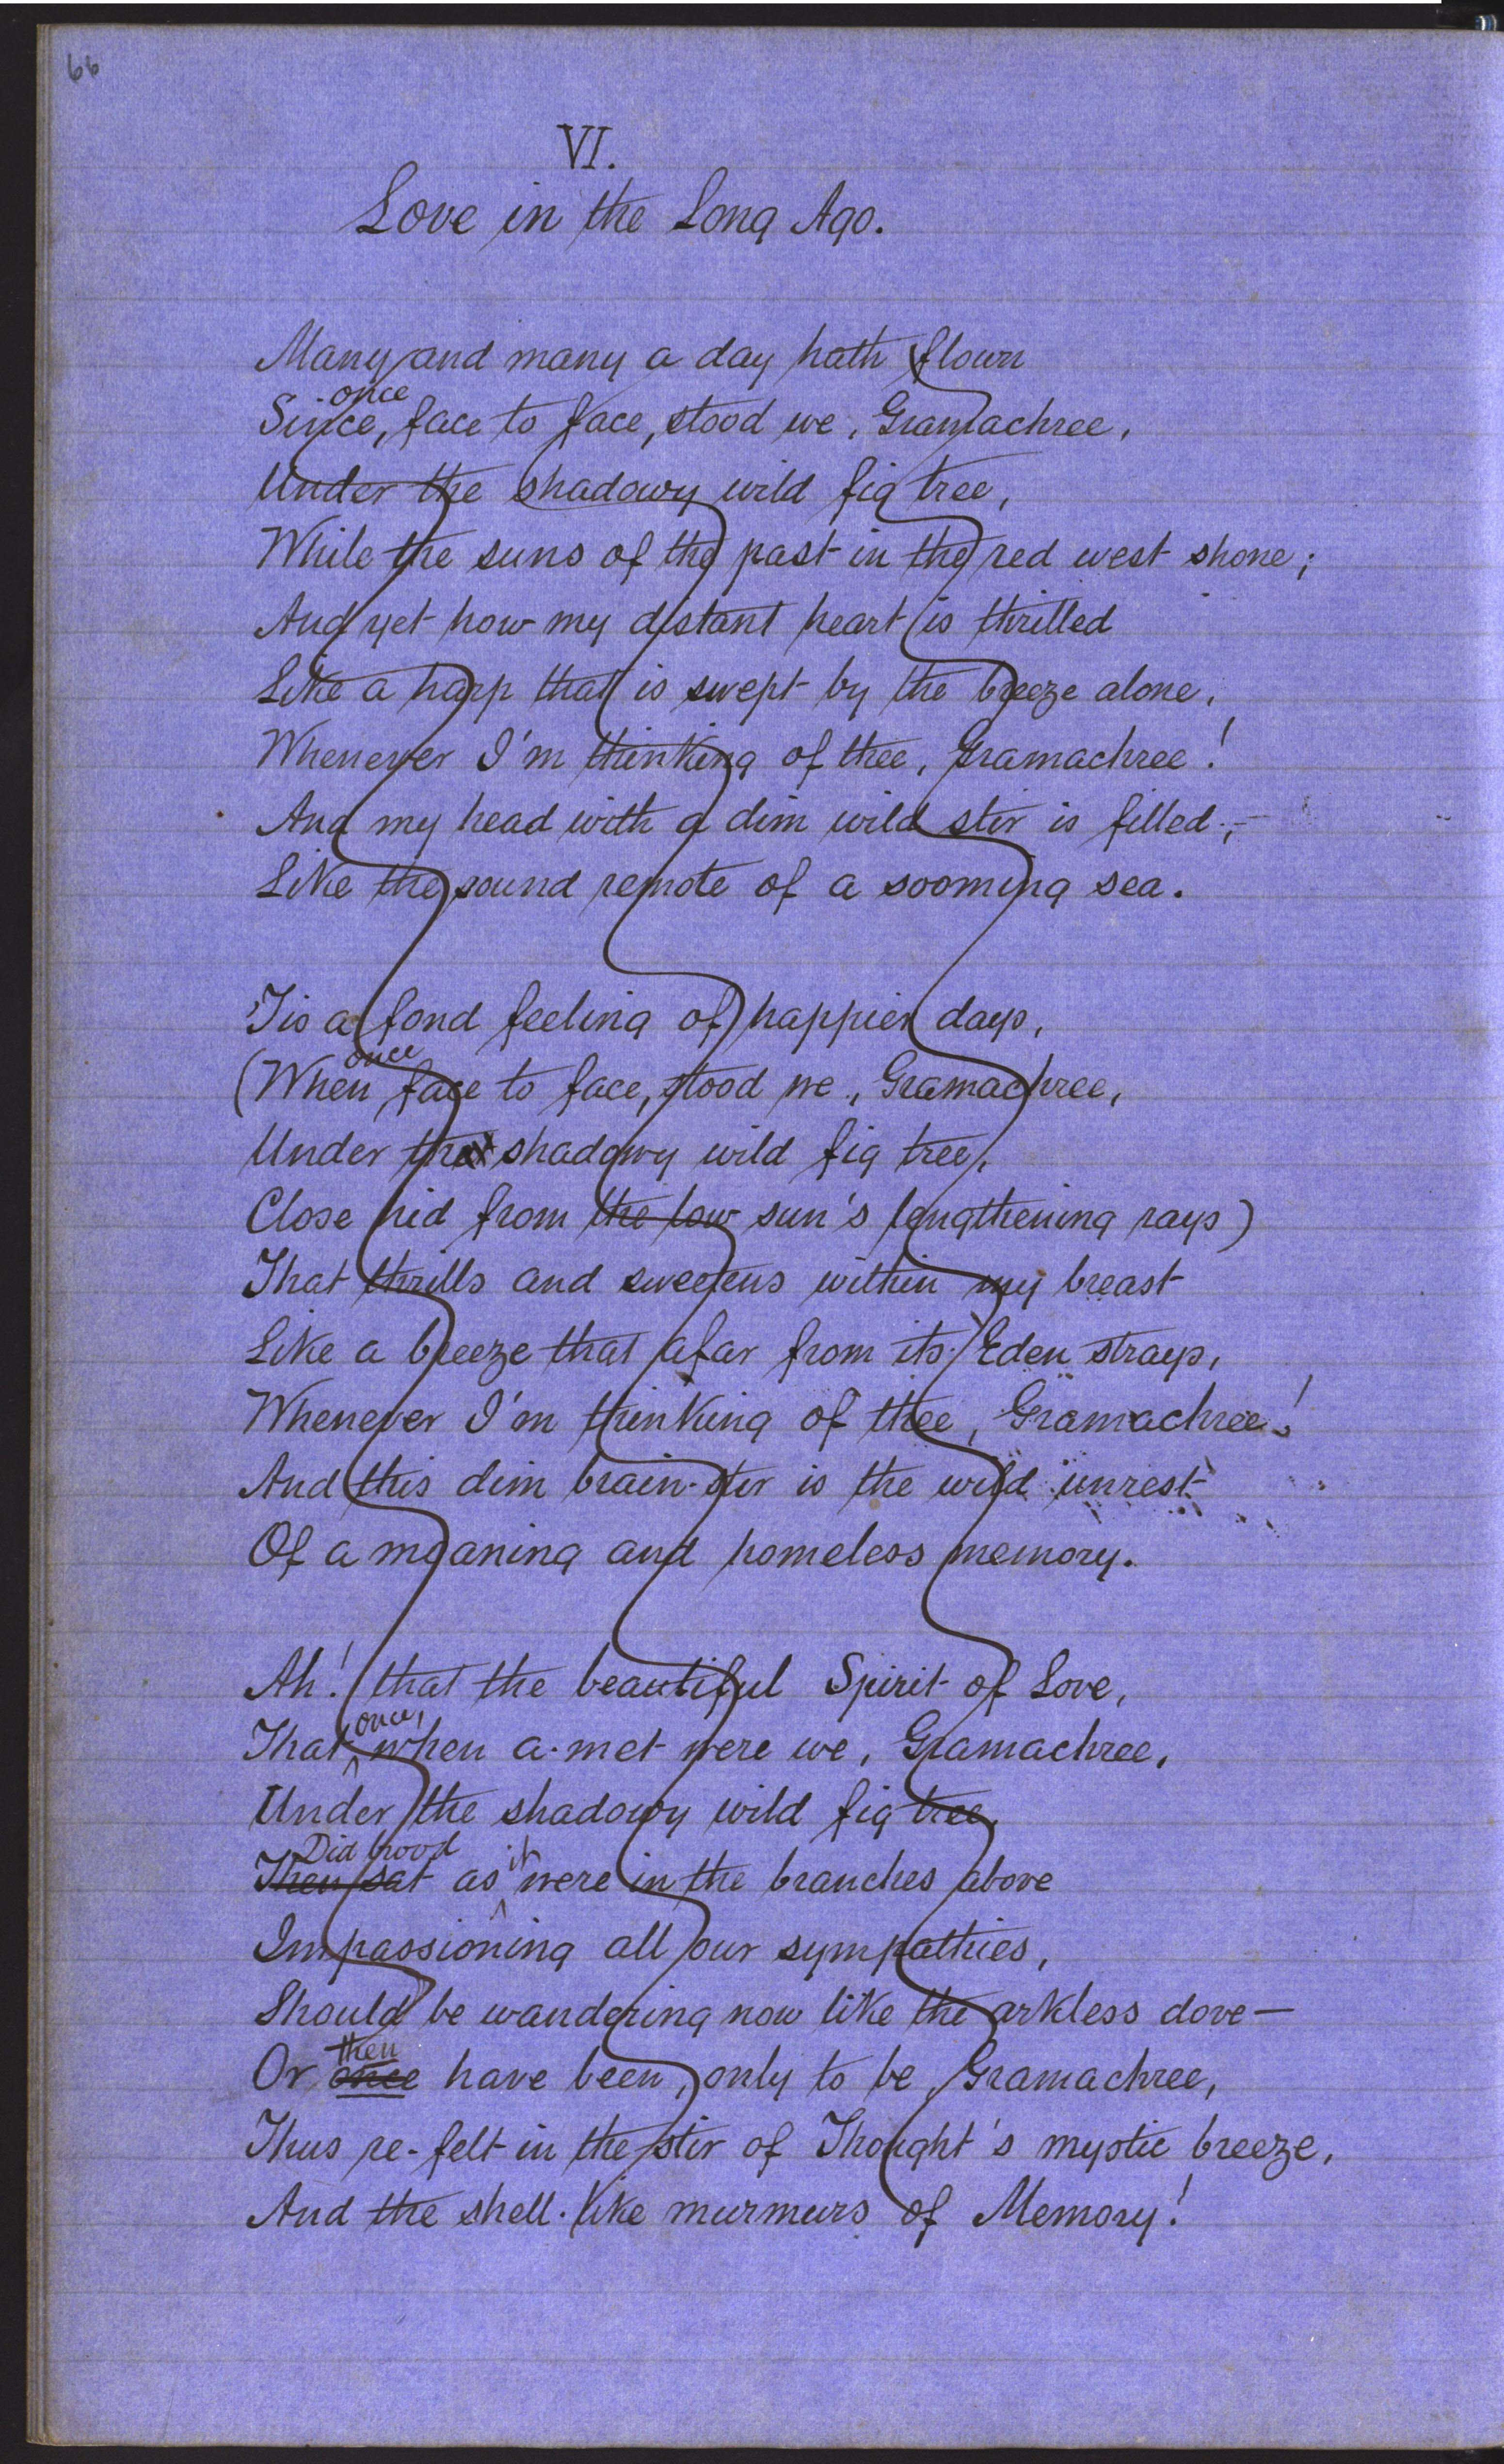 66
VI.
Love in the Long Ago.
Many and many a day hath flown
once
Since, face to face, stood we, Gramachree,
Under the shadowy wild fig tree,
While the suns of the past in the red west shone;
And yet how my distant heart is thrilled
Like a harp that is swept by the breeze alone,
Whenever I'm thinking of thee, Gramachree!
And my head with a dim wild stir is filled,—
Like the sound remote of a sooming sea.
'Tis a fond feeling of happier days,
once
(When face to face, stood we, Gramachree,
Under the shadowy wild fig tree,
Close hid from the low sun's lengthening rays)
That thrills and sweetens within my breast
Like a breeze that afar from its Eden strays,
Whenever I'm thinking of thee, Gramachree!
And this dim brain-stir is the wild unrest
Of a moaning and homeless memory.
Ah! that the beautiful Spirit of Love,
once,
That when a-met were we, Gramachree,
Under the shadowy wild fig tree,
Did brood it
Then sat as were in the branches above
Impassioning all our sympathies,
Should be wandering now like the arkless dove—
then
Or once have been, only to be, Gramachree,
Thus re-felt in the stir of Thought's mystic breeze,
And the shell-like murmurs of Memory!